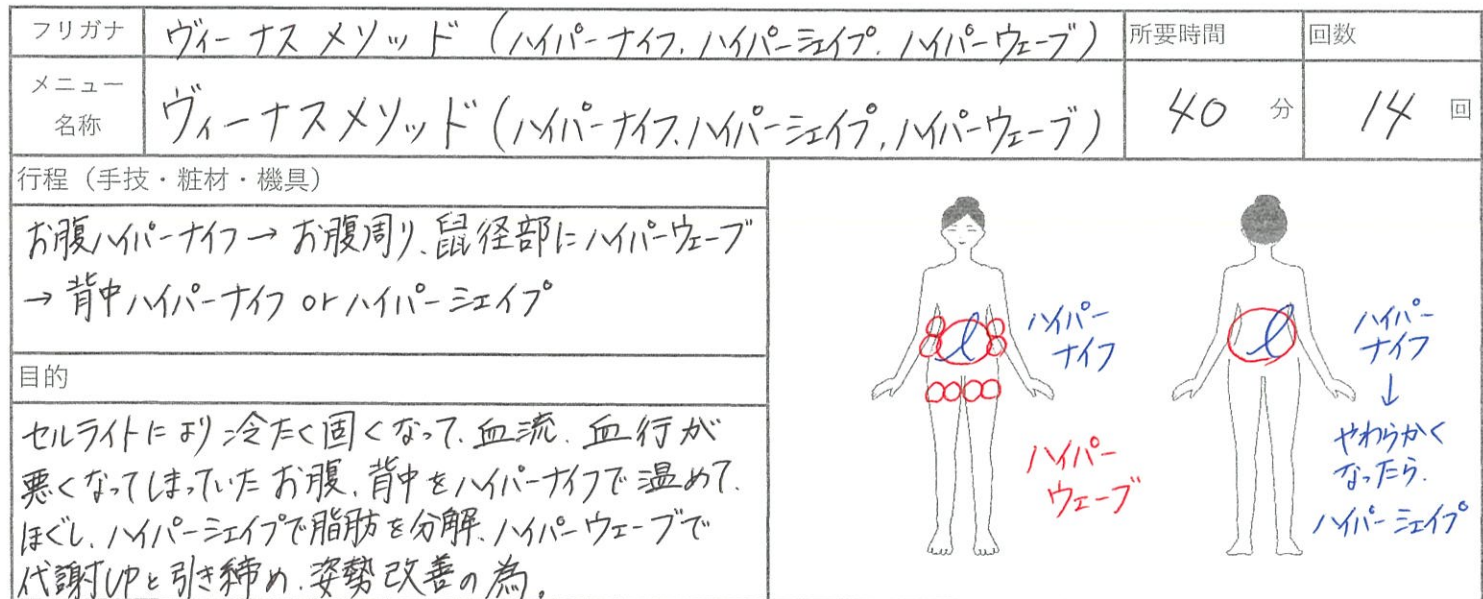 フリガナ
ヴィーナスメソッド(ハイパーナイフ、ハイパーシェイプ、ハイパーウェーブ)
所要時間
回数
メニュー
名称
ヴィーナスメソッド(ハイパーナイフ、ハイパーシェイプ、ハイパーウェーブ)
40 分
14 回
行程(手技・粧材・機具)
お腹ハイパーナイフ→お腹周り、鼠径部にハイパーウェーブ
→背中ハイパーナイフ or ハイパーシェイプ
目的
セルライトにより冷たく固くなって、血流、血行が
悪くなってしまっていたお腹、背中をハイパーナイフで温めて、
ほぐし、ハイパーシェイプで脂肪を分解、ハイパーウェーブで
代謝UPと引き締め、姿勢改善の為。
ハイパー
ナイフ
ハイパー
ウェーブ
ハイパー
ナイフ
↓
やわらかく
なったら、
ハイパーシェイプ